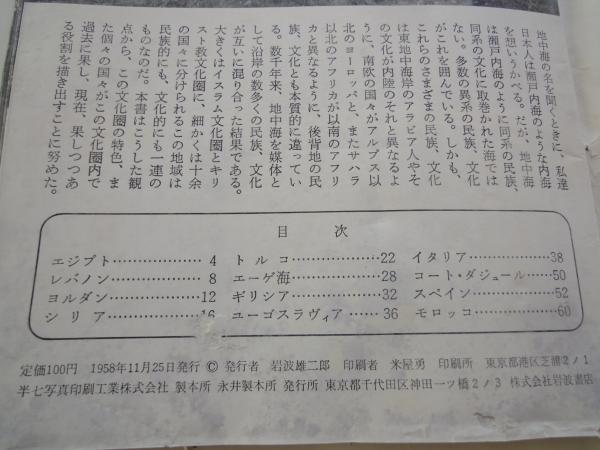 地中海の名を聞くときに、私達
日本人は瀬戸内海のような内海
を想いうかべる。だが、地中海
は瀬戸内海のように同系の民族、
同系の文化に取巻かれた海では
ない。多数の異系の民族、文化
がこれを囲んでいる。しかも、
これらのさまざまの民族、文化
は東地中海岸のアラビア人やそ
の文化が内陸のそれと異なるよ
うに、南欧の国々がアルプス以
北のヨーロッパと、またサハラ
以北のアフリカが以南のアフリ
カと異なるように、後背地の民
族、文化とも本質的に違ってい
る。数千年来、地中海を媒体と
して沿岸の数多くの民族、文化
が互いに混り合った結果である。
大きくはイスラム文化圏とキリ
スト教文化圏に、細かくは十余
の国々に分けられるこの地域は
民族的にも、文化的にも一連の
ものなのだ。本書はこうした観
点から、この文化圏の特色、ま
た個々の国々がこの文化圏内で
過去に果し、現在、果しつつあ
る役割を描き出すことに努めた。
目次
エジプト………………4
レバノン………………8
ヨルダン………………12
シリア………………16
トルコ………………22
エーゲ海………………28
ギリシア………………32
ユーゴスラヴィア……36
イタリア………………38
コート・ダジュール……50
スペイン………………52
モロッコ………………60
定価100円 1958年11月25日発行 © 発行者 岩波雄二郎 印刷者 米屋勇 印刷所 東京都港区芝浦2ノ1
半七写真印刷工業株式会社 製本所 永井製本所 発行所 東京都千代田区神田一ツ橋2ノ3 株式会社岩波書店